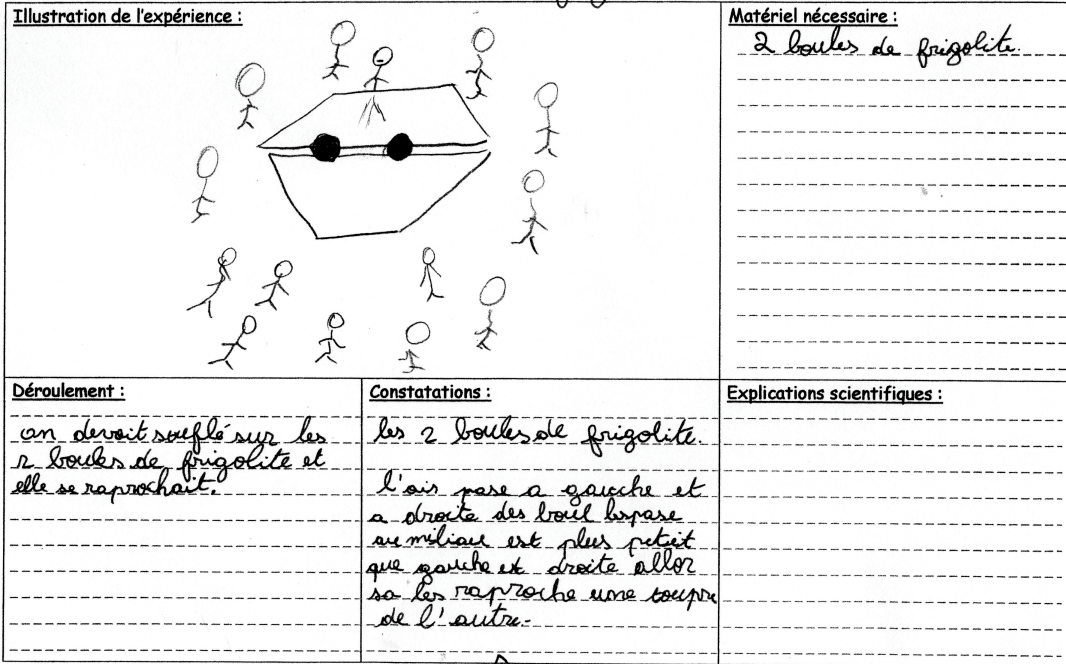 Illustration de l'expérience :
Matériel nécessaire :
2 boules de frigolite.
Déroulement :
on devoit souflé sur les
2 boules de frigolite et
elle se raprochait.
Constatations :
les 2 boules de frigolite.
l'air pase a gauche et
a droite des boul l'espase
au miliau est plus petit
que gauche et droite allor
sa les raproche une
de l'autre.
Explications scientifiques :